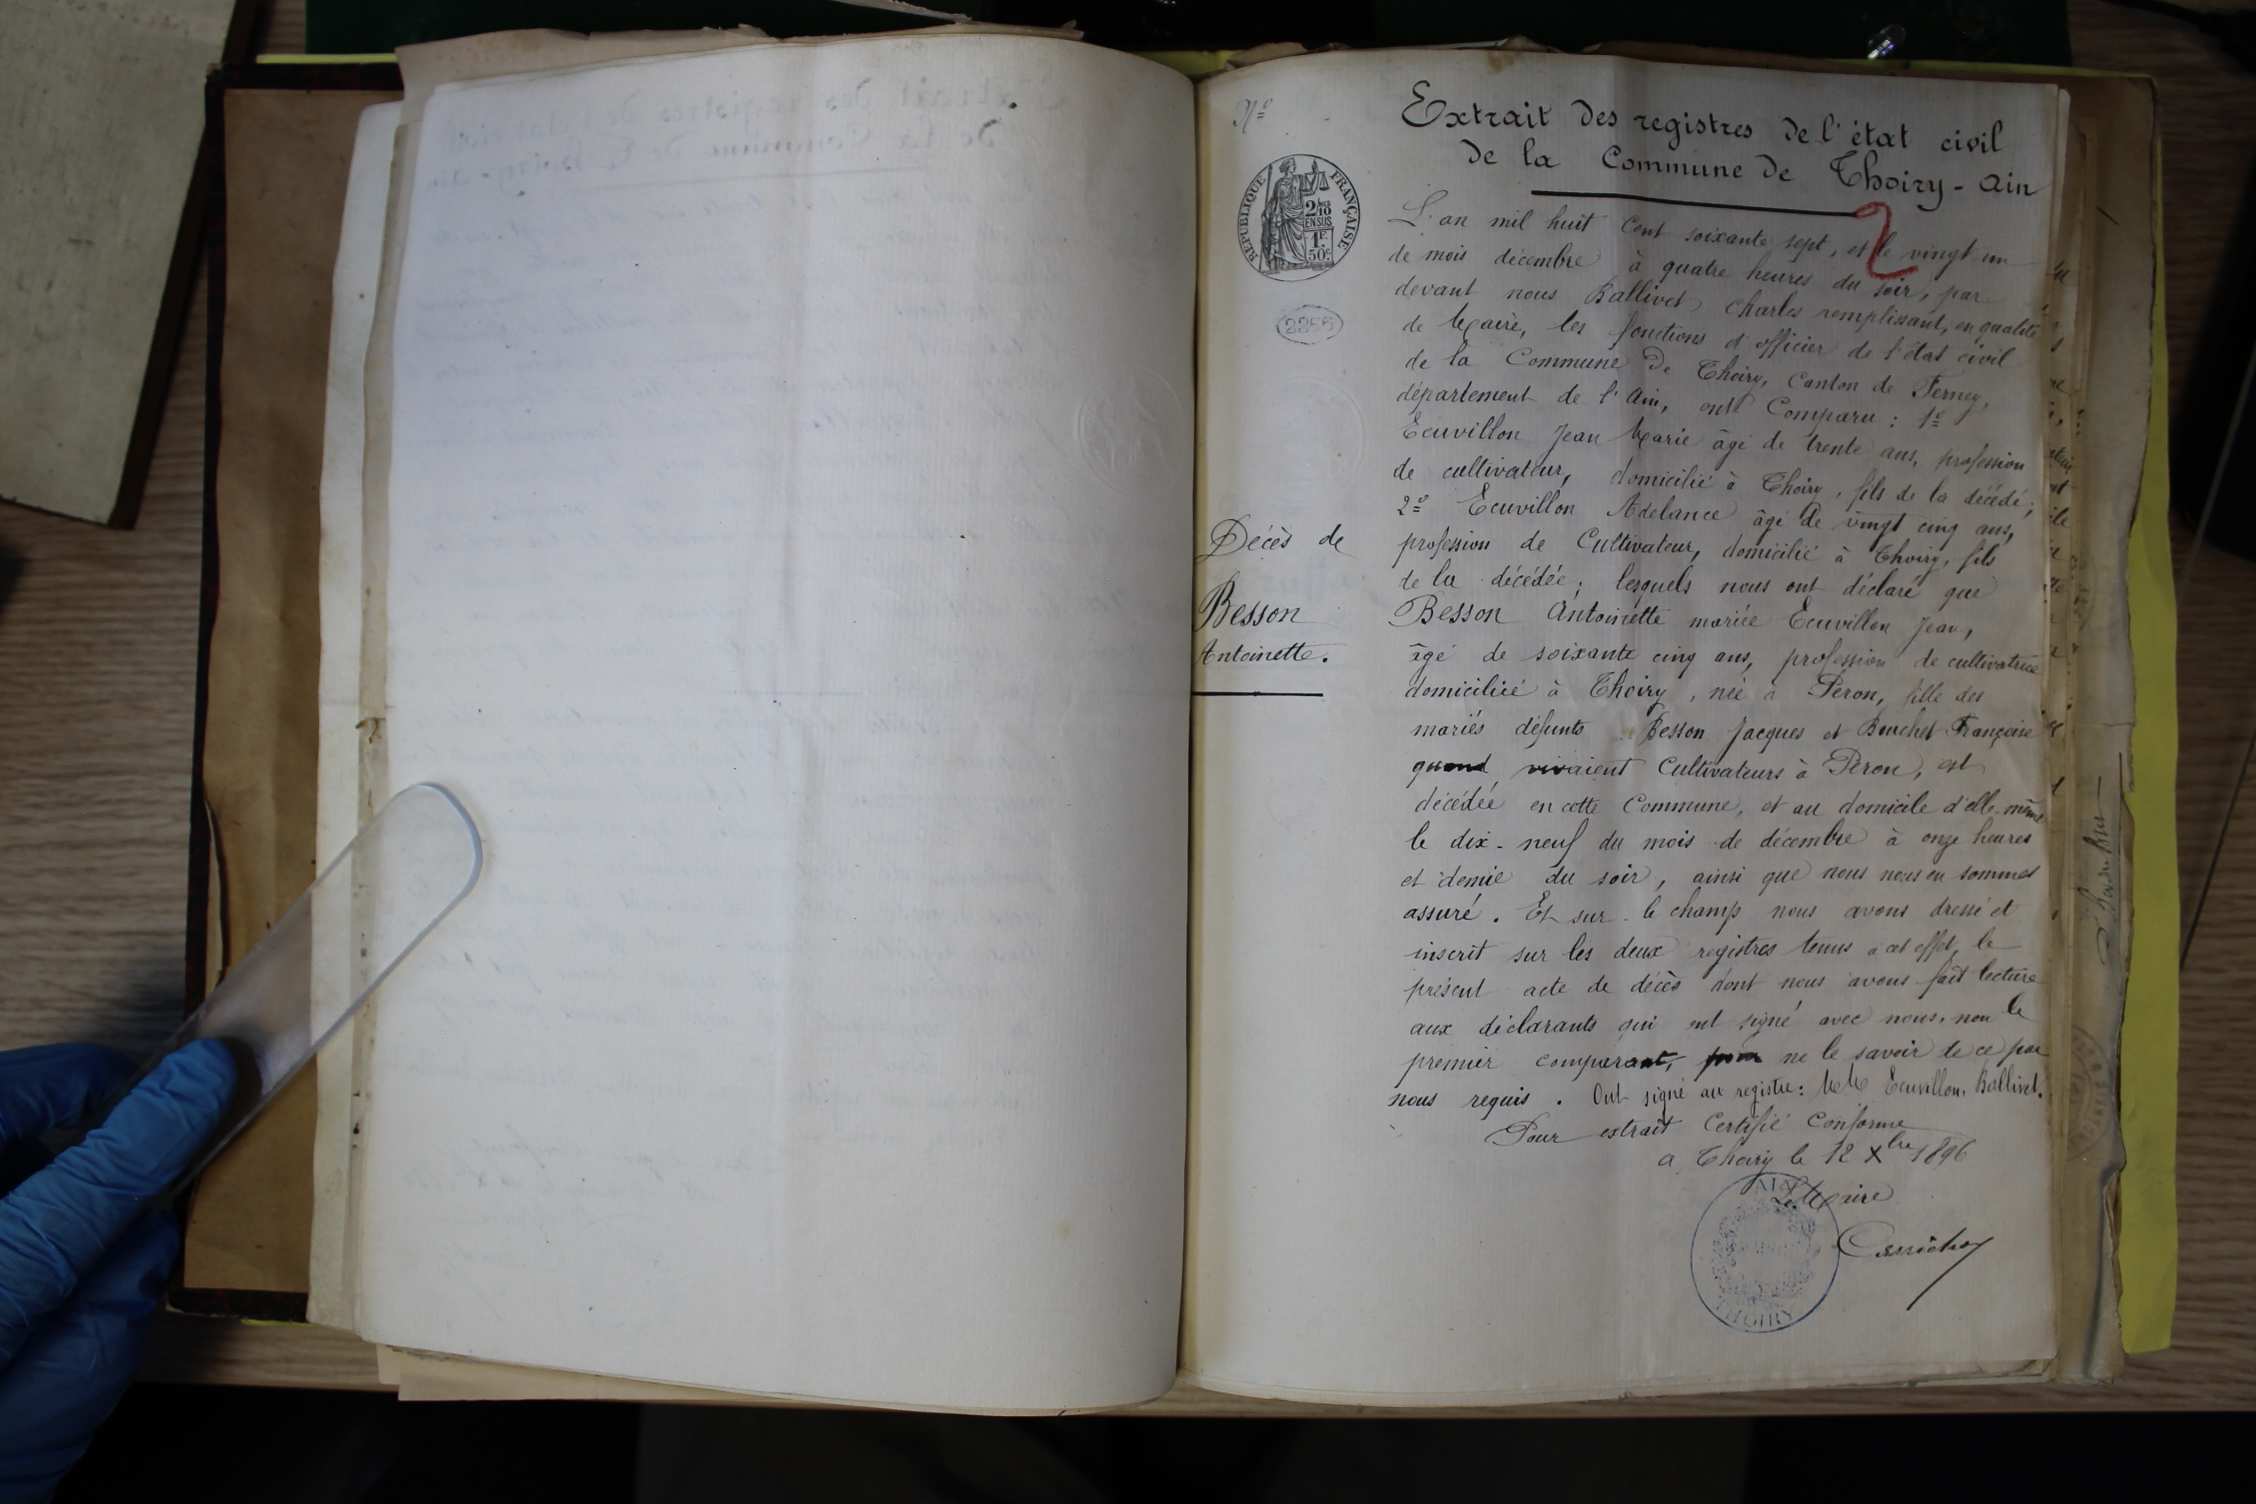 Nº
Extrait des registres de l'état civil
de la Commune de Thoiry - Ain
RÉPUBLIQUE FRANÇAISE
2/10
EN SUS
1F
50c
L'an mil huit cent soixante sept, et le vingt un
de mois décembre à quatre heures du soir, par
devant nous Ballivet Charles remplissant, en qualité
de Maire, les fonctions d'officier de l'état civil
de la Commune de Thoiry, Canton de Ferney,
département de l'Ain, ont Comparu : 1º
Ecuvillon Jean Marie âgé de trente ans, profession
de cultivateur, domicilié à Thoiry, fils de la décédé;
2º Ecuvillon Adelance âgé de vingt cinq ans,
profession de Cultivateur, domicilié à Thoiry, fils
de la décédée; lesquels nous ont déclaré que
Décès de
Besson
Antoinette.
Besson Antoinette mariée Ecuvillon Jean,
âgé de soixante cinq ans, profession de cultivatrice
domiciliée à Thoiry, née à Péron, fille des
mariés défunts Besson Jacques et Bouchet Françoise
quand vivaient Cultivateurs à Péron, est
décédée en cette Commune, et au domicile d'elle-même
le dix-neuf du mois de décembre à onze heures
et demie du soir, ainsi que nous nous en sommes
assuré. Et sur-le champ nous avons dressé et
inscrit sur les deux registres tenus à cet effet, le
présent acte de décès dont nous avons fait lecture
aux déclarants qui ont signé avec nous, non le
premier comparant, pour ne le savoir de ce par
nous requis. Ont signé au registre: MM Ecuvillon, Ballivet.
Pour extrait Certifié Conforme
a Thoiry le 12 Xbre 1896
Le Maire
AIN
THOIRY